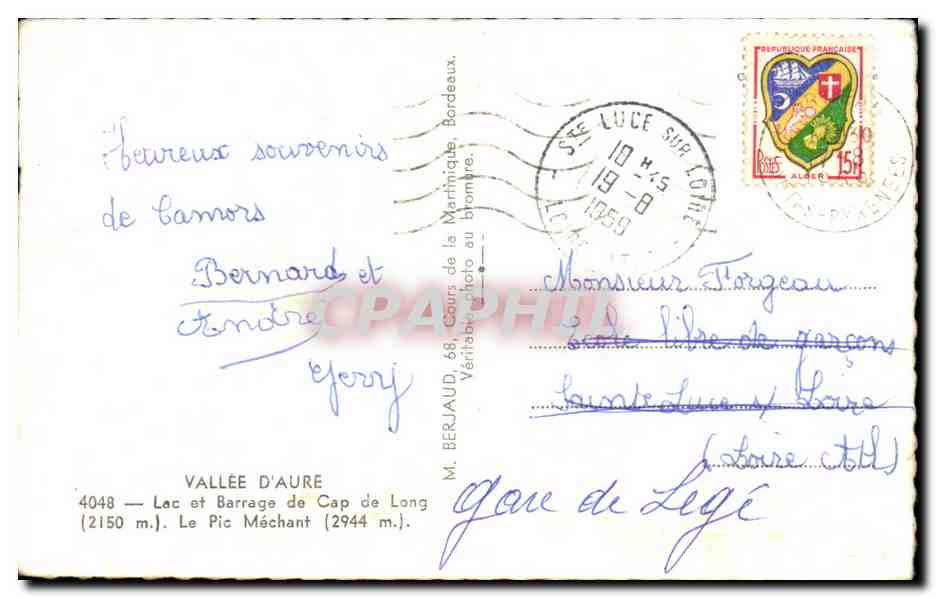 heureux souvenirs
de Camors
Bernard et
André
Gerry
VALLÉE D'AURE
4048 — Lac et Barrage de Cap de Long
(2150 m.). Le Pic Méchant (2944 m.).
M. BERJAUD, 68, Cours de la Martinique, Bordeaux.
Véritable photo au bromure.
REPUBLIQUE FRANÇAISE
POSTES 15F
ALGER
STE LUCE SUR LOIRE
10 H 45
19-8
1959
PYRENEES
Monsieur Forgeau
Ecole libre de garçons
Sainte Luce s/ Loire
(Loire Atl)
Gare de Légé
CPAPHIL